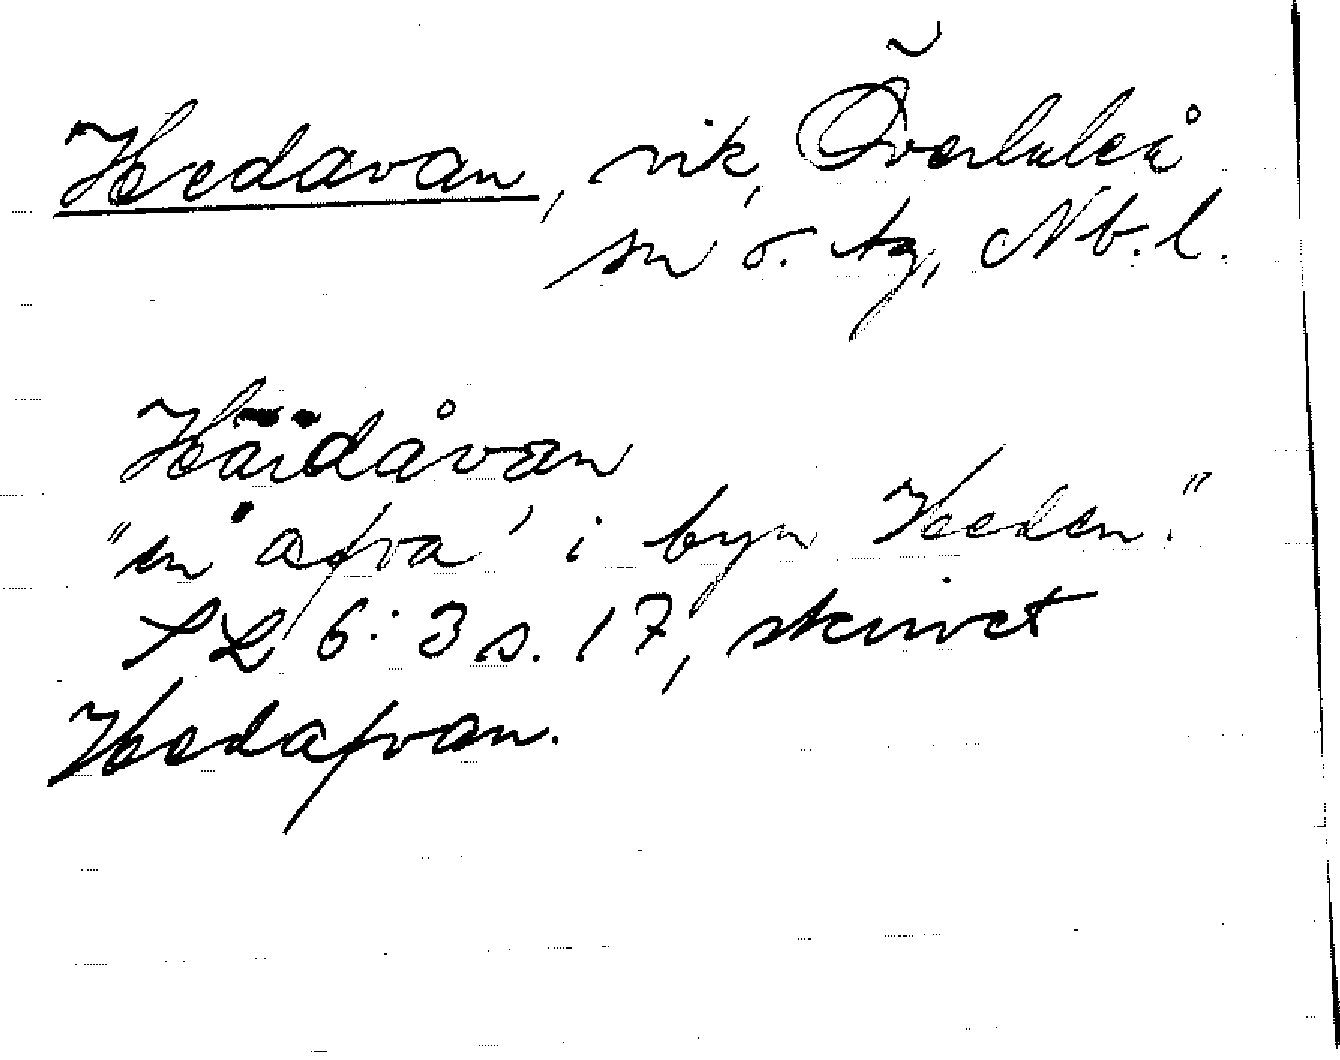 Hedavan, vik, Överluleå
sn o. tg, Nb.l.
Häidåvan
"en 'afva' i byn Heden."
SL 6:3 s. 17, skrivet
Hedafvan.